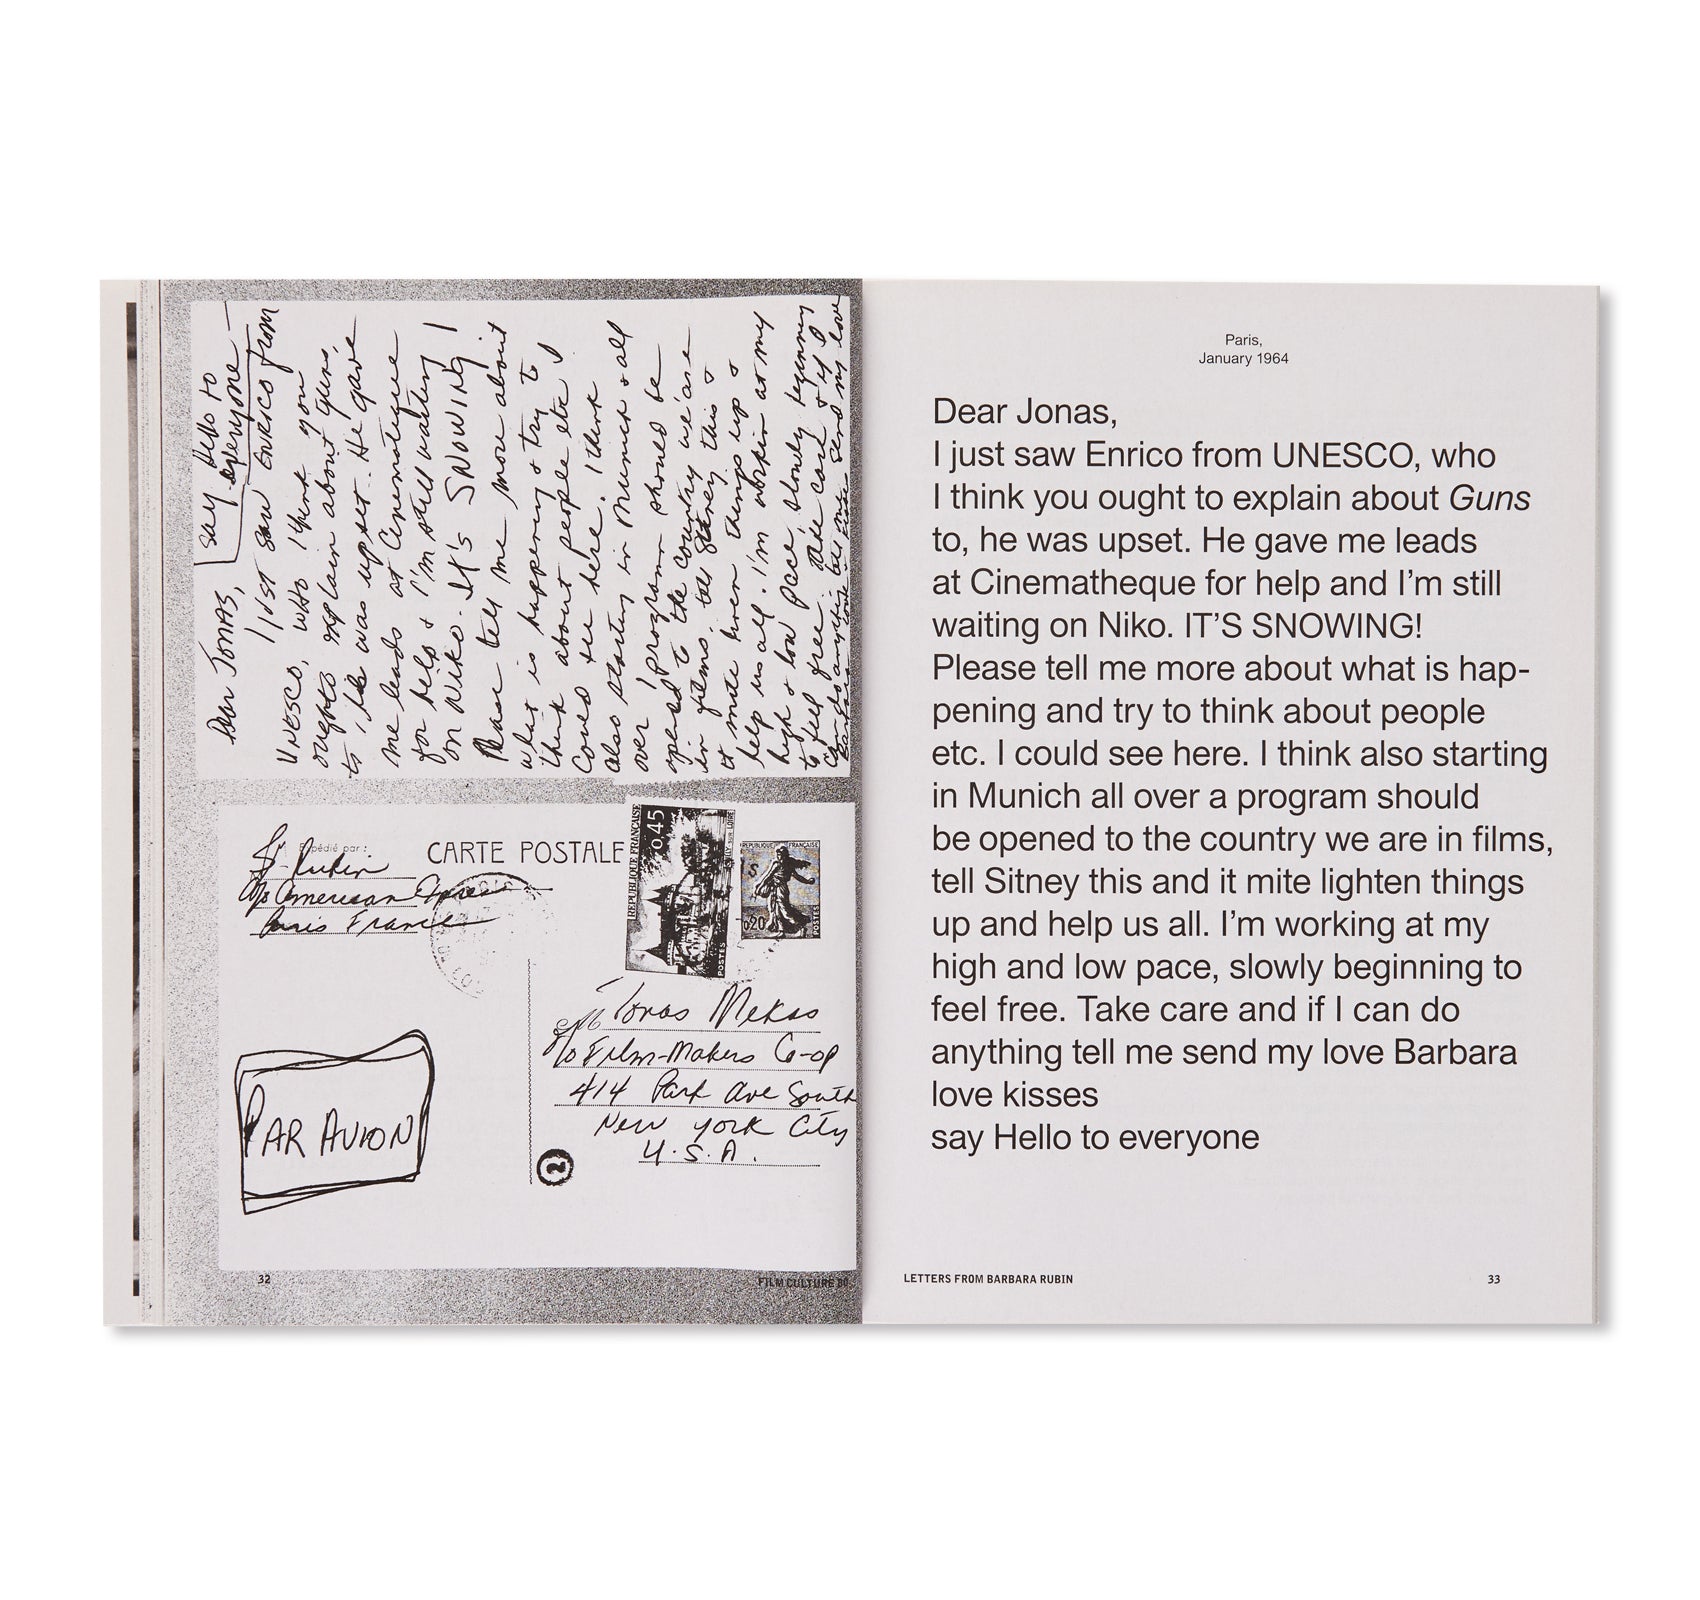 say Hello to
everyone —
Dear Jonas,
I just saw ENRICO from
UNESCO, who I think you
ought to explain about Guns,
to, he was upset.. He gave
me leads at Cinematheque
for help & I'm still waiting
on Niko. It's SNOWING!
Please tell me more about
what is happening & try to
think about people etc. I
could see here. I think
also starting in Munich & all
over, program should be
opened to the country we are
in films, tell Sitney this &
it mite lighten things up &
help us all. I'm workin at my
high & low pace, slowly beginning
to feel free. Take care & if I
can do anything tell me send my love
Barbara love kisses
Expédié par :
CARTE POSTALE
B. Rubin
c/o American Express
Paris France
REPUBLIQUE FRANÇAISE
0,45
POSTES
REPUBLIQUE FRANÇAISE
0,20
POSTES
Jonas Mekas
c/o Film-Makers Co-op
414 Park Ave South
New York City
U.S.A.
PAR AVION
2
32
FILM CULTURE 80
Paris,
January 1964
Dear Jonas,
I just saw Enrico from UNESCO, who
I think you ought to explain about Guns
to, he was upset. He gave me leads
at Cinematheque for help and I'm still
waiting on Niko. IT'S SNOWING!
Please tell me more about what is hap-
pening and try to think about people
etc. I could see here. I think also starting
in Munich all over a program should
be opened to the country we are in films,
tell Sitney this and it mite lighten things
up and help us all. I'm working at my
high and low pace, slowly beginning to
feel free. Take care and if I can do
anything tell me send my love Barbara
love kisses
say Hello to everyone
LETTERS FROM BARBARA RUBIN
33